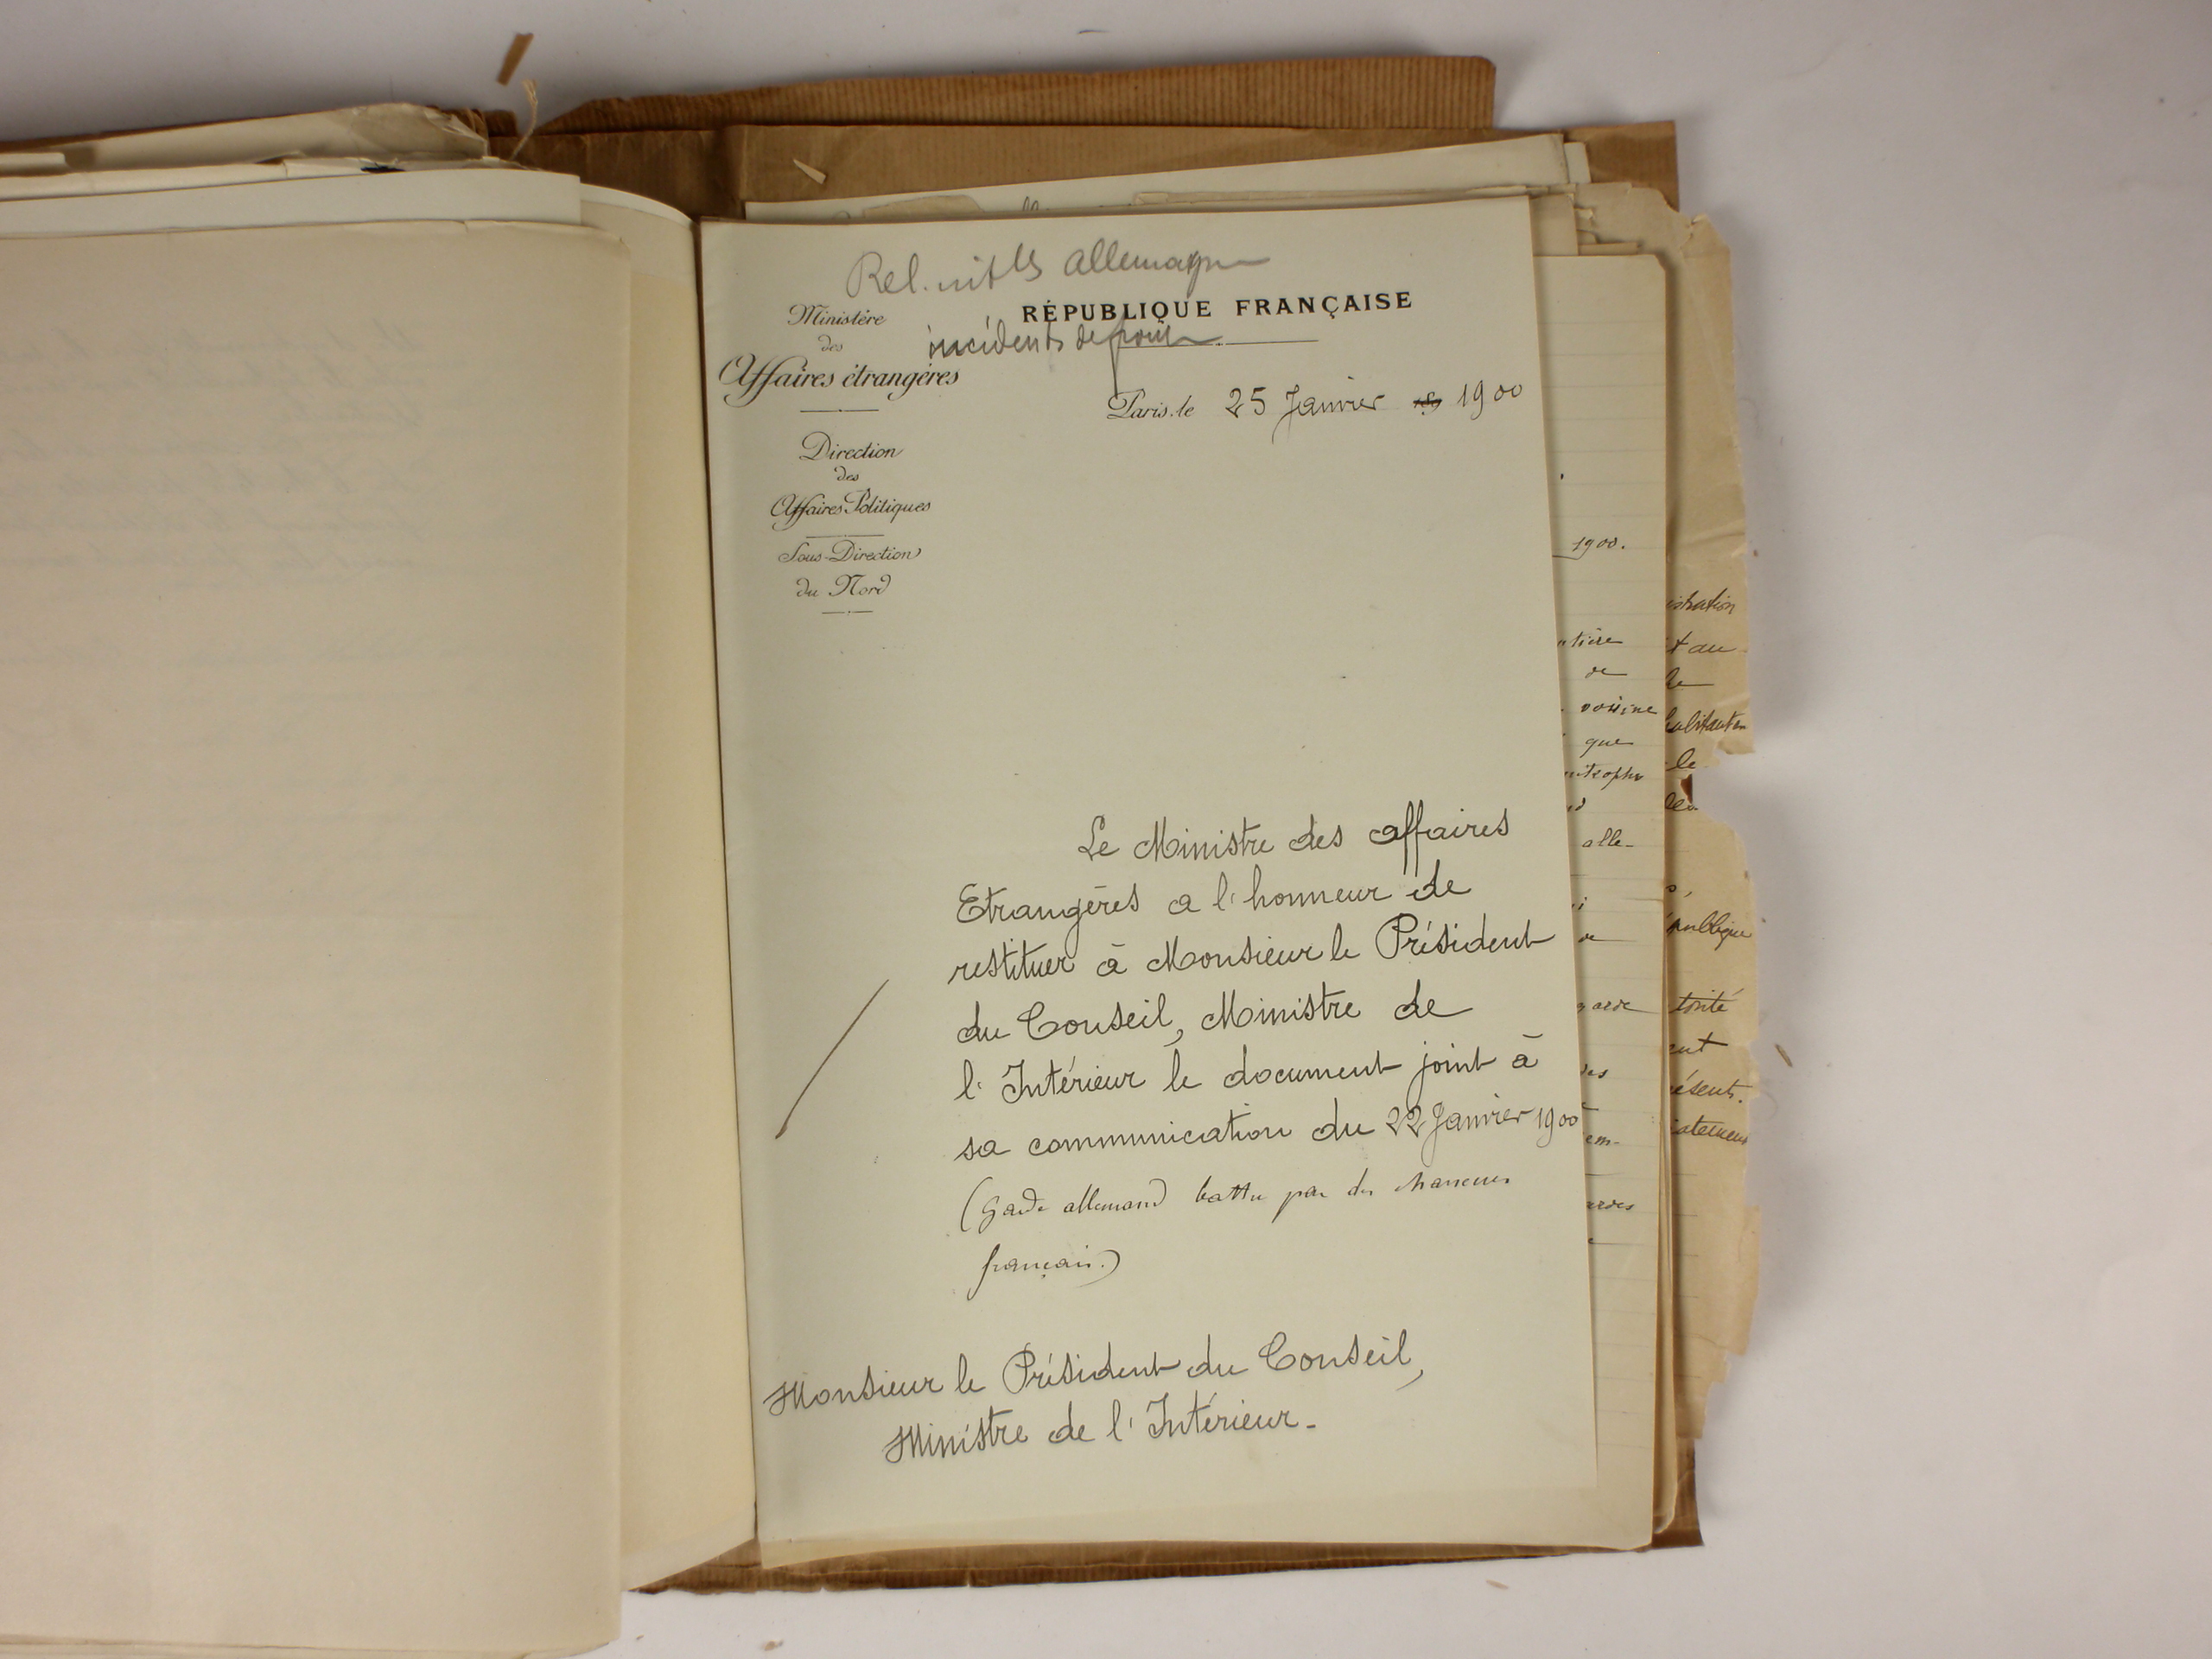 Rel. int les allemagne
Ministère
des
Affaires étrangères
RÉPUBLIQUE FRANÇAISE
incidents de front
Paris, le 25 Janvier 189 1900
Direction
des
Affaires Politiques
Sous-Direction
du Nord
Le Ministre des affaires
Etrangères a l'honneur de
restituer à Monsieur le Président
du Conseil, Ministre de
l'Intérieur le document joint à
sa communication du 22 Janvier 1900
(Garde allemand battu par des chasseurs
français.)
Monsieur le Président du Conseil,
Ministre de l'Intérieur.
1900.
de
voisine
que
alle-
garde
des
le